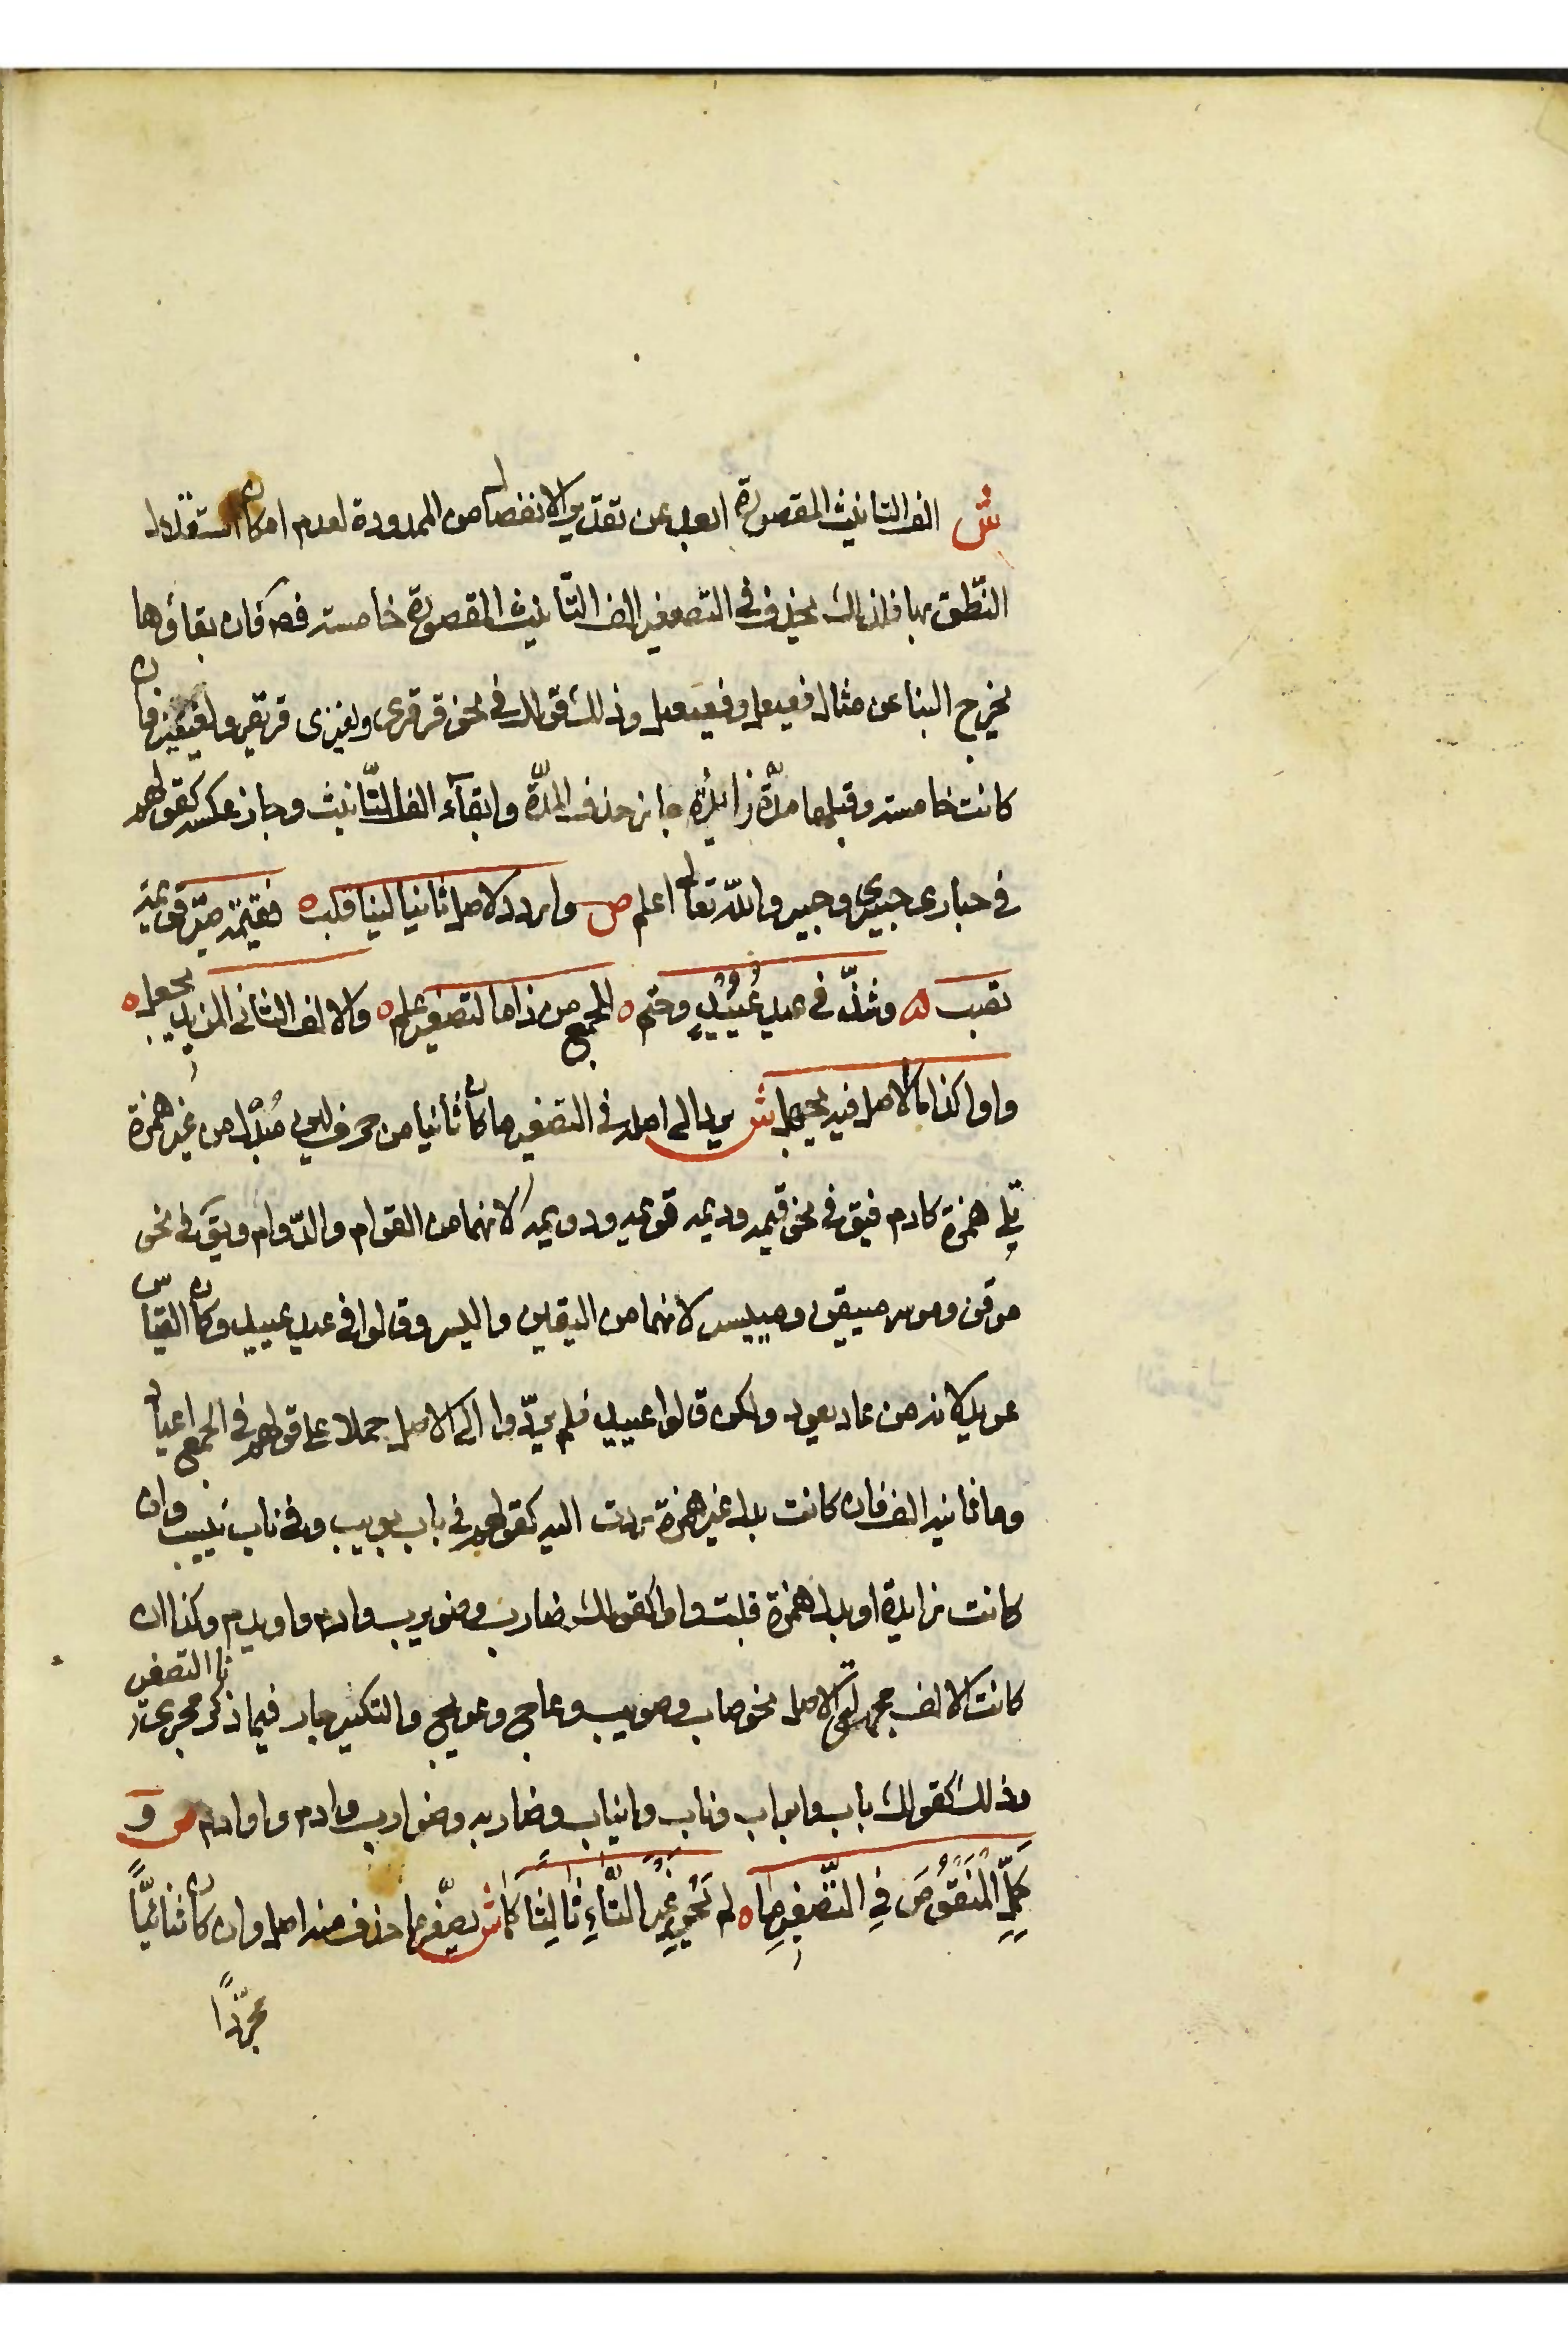 ش الف التانيث المقصورة ابعد عن تقدير الانفصال من الممدودة لعدم امكان استقلال
النطق بها فلذلك يحذف في التصغير الف التانيث المقصورة خامسة فصـ فان بقاؤها
يخرج البنا عن مثال فعيعل وفعيعيل وذلك قولك في نحو قرقرى ولغيزى قريقر ولغيغيز فان
كانت خامسة وقبلها مدّة زائدة جاز حذف المدّة وابقآء الف التّانيث وجاز عكسه كقولهم
في حبارى حبيرى وحبير والله تعالى اعلم ص واردد لاصل ثانيا لينا قلب ه فقيمة صيّر قويمة
تصب ه وشذّ في عيد عُيَيْدٍ وحتم ه للجمع من ذا ما لتصغير علم ه والالف الثاني المزيد يجعل ه
واوا كذا ما الاصل فيه يجهل ش يرد الى اصله في التصغير ما كان ثانيا من حرف لين مُبْدل من غير همزة
تلي همزة كادم فيق في نحو قيمه وديمه قويمه ودويمه لانهما من القوام والدّوام ويق في نحو
موقن وموسر مييقن ومييسر لانهما من اليقين واليسر وقالوا في عيد عييد وكان القياس
عويد لانه من عاد يعود ولكن قالوا عييد فلم يردّوا الى الاصل حملا على قولهم في الجمع اعياد
وما ثانيه الف فان كانت بدل غير همزة ردت اليه كقولهم في باب بويب وفي ناب نييب وان
كانت زايدة او بدل همزة قلبت واوا كقولك ضارب وضويرب وادم واويدم وكذا ان
كانت الالف مجهولة الاصل نحو صاب وصويب وعاج وعويج والتكسير جار فيما ذكر مجرى التصغير
وذلك كقولك باب وابواب وناب وانياب وضاربه وضوارب وادم واوادم ص وَ
كَمِّلِ المَنْقُوصَ فِي التَّصْغِيرِ مَا ه لم يَحْوِ غَيْرَ التَّاءِ ثَالِثًا كَمَا ش يصغّر ما حذف منه اصل وان كان ثنائيّاً
مجرّداً